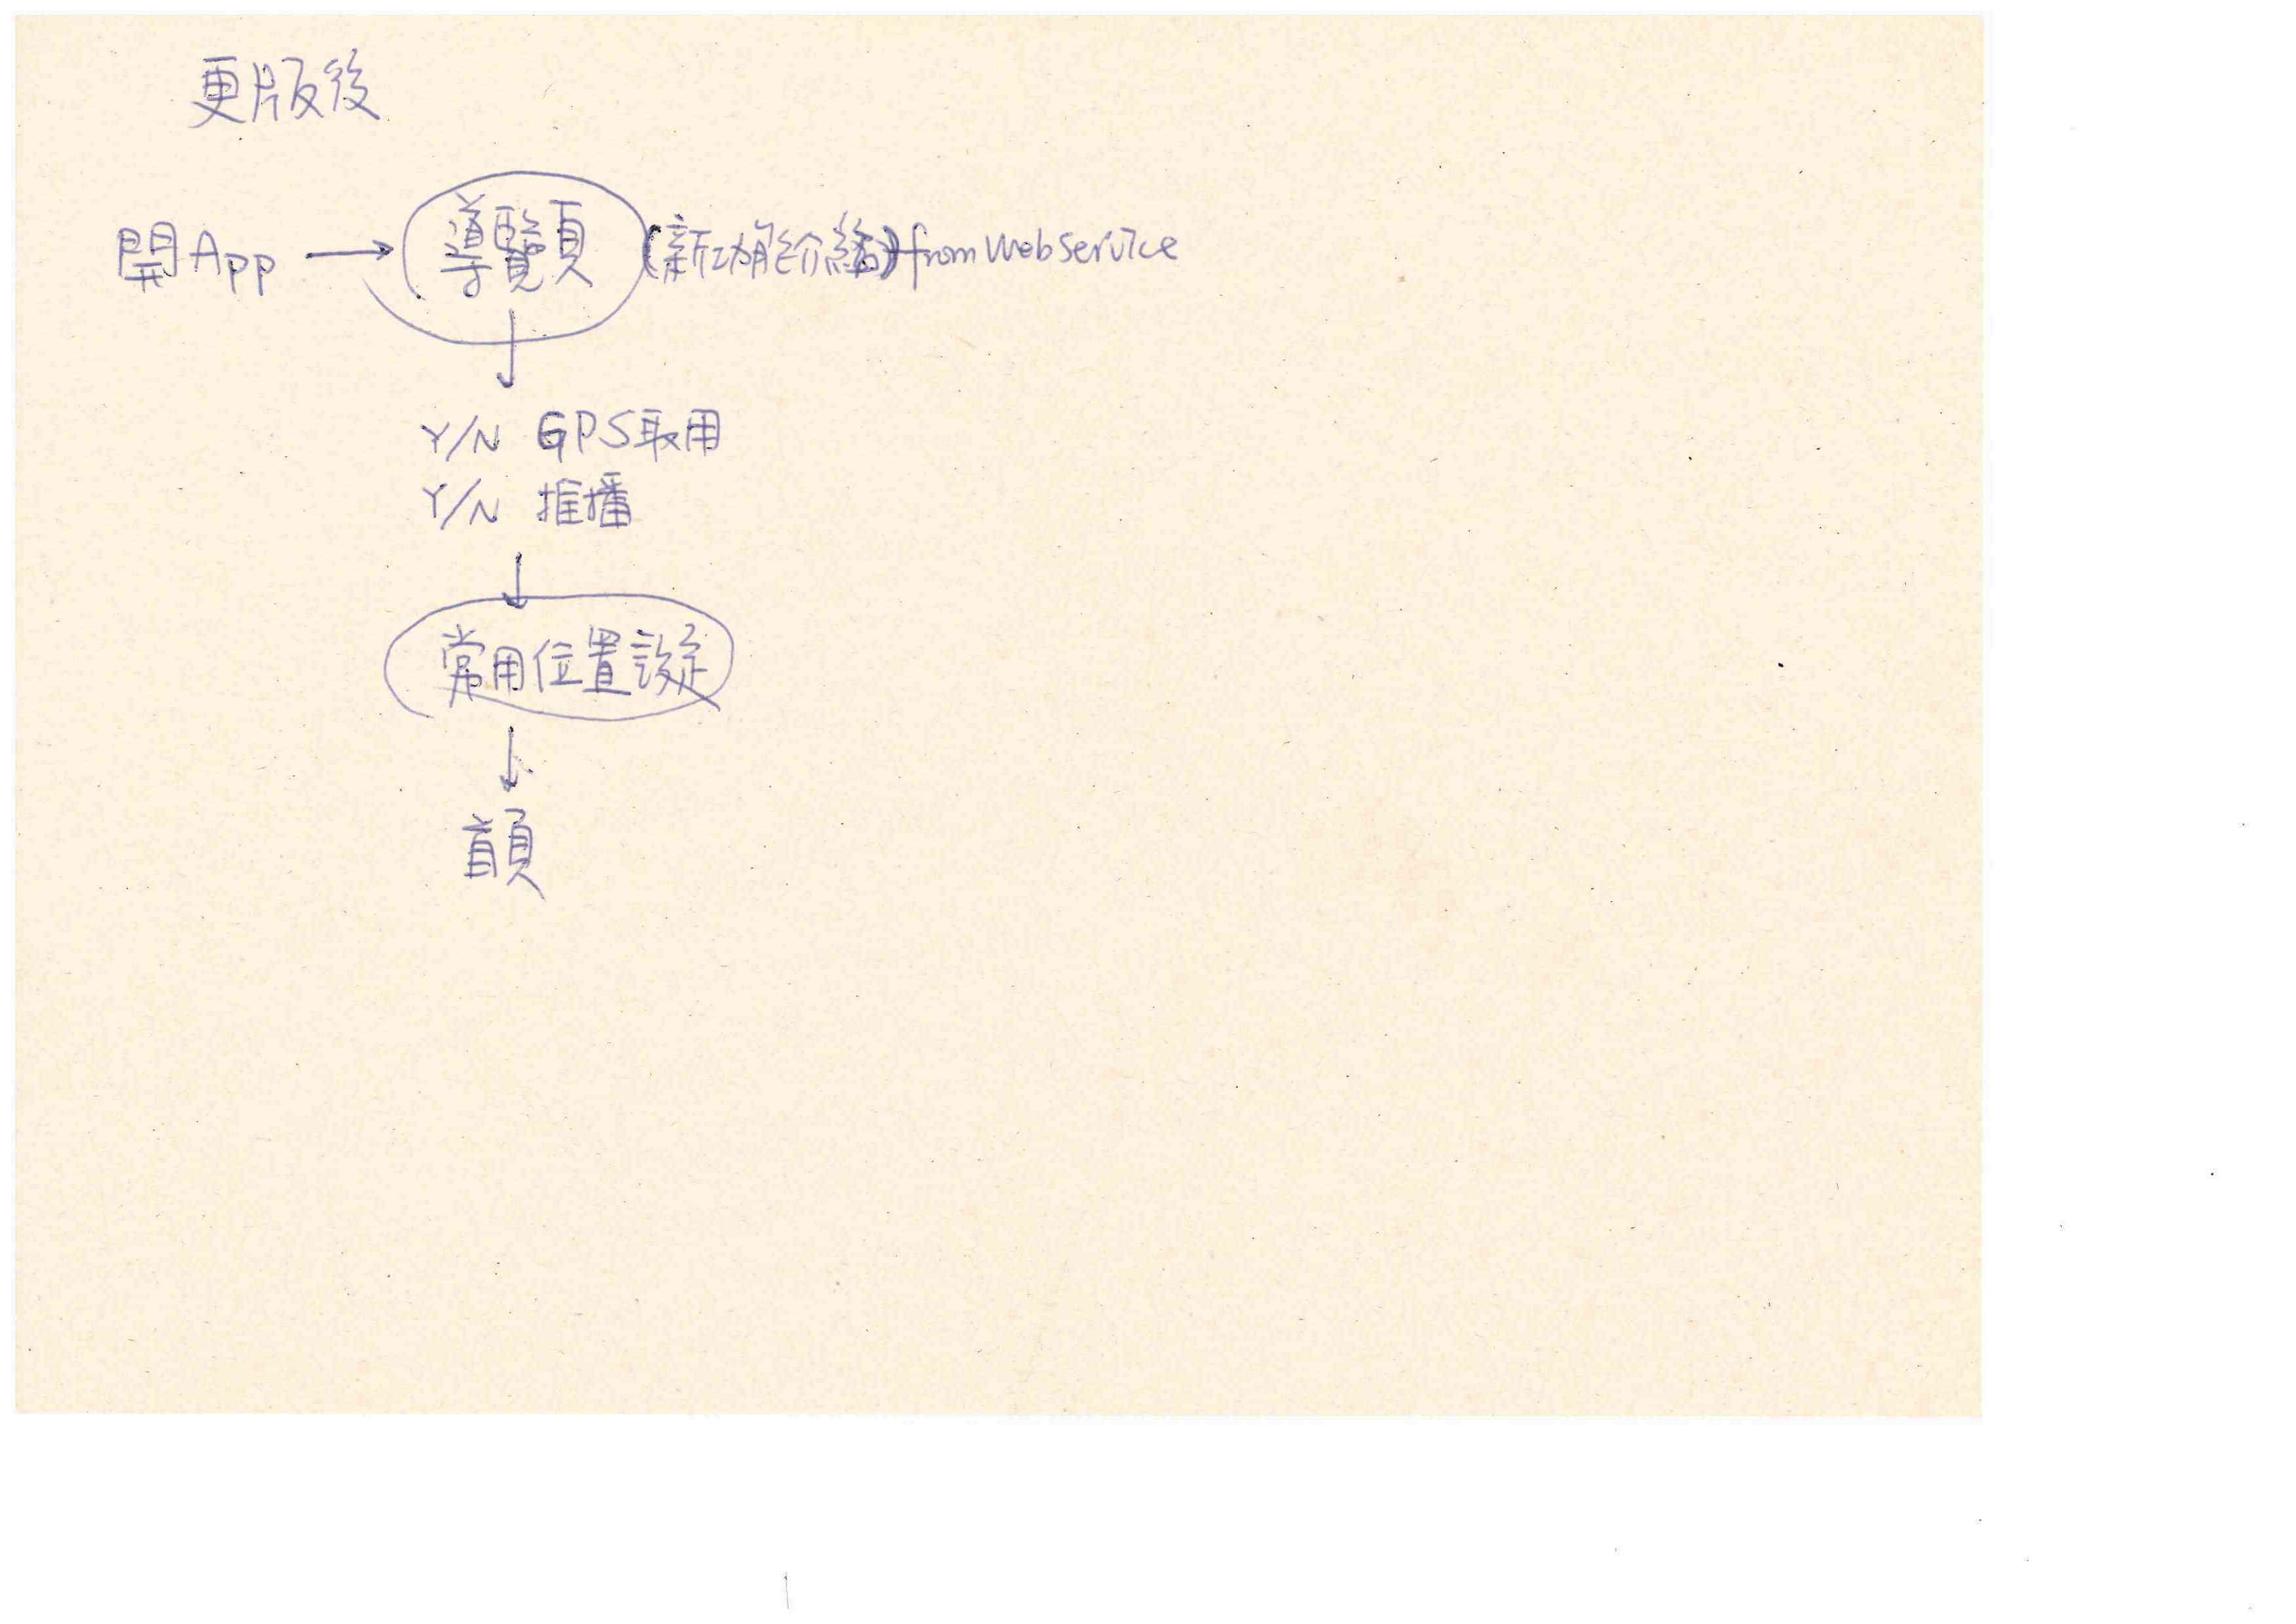 更版後
開App → 導覽頁 (新功能介紹) from Web Service
Y/N GPS取用
Y/N 推播
常用位置設定
首頁